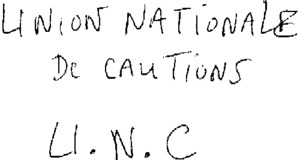 UNION NATIONALE
De CAUTIONS
U.N.C